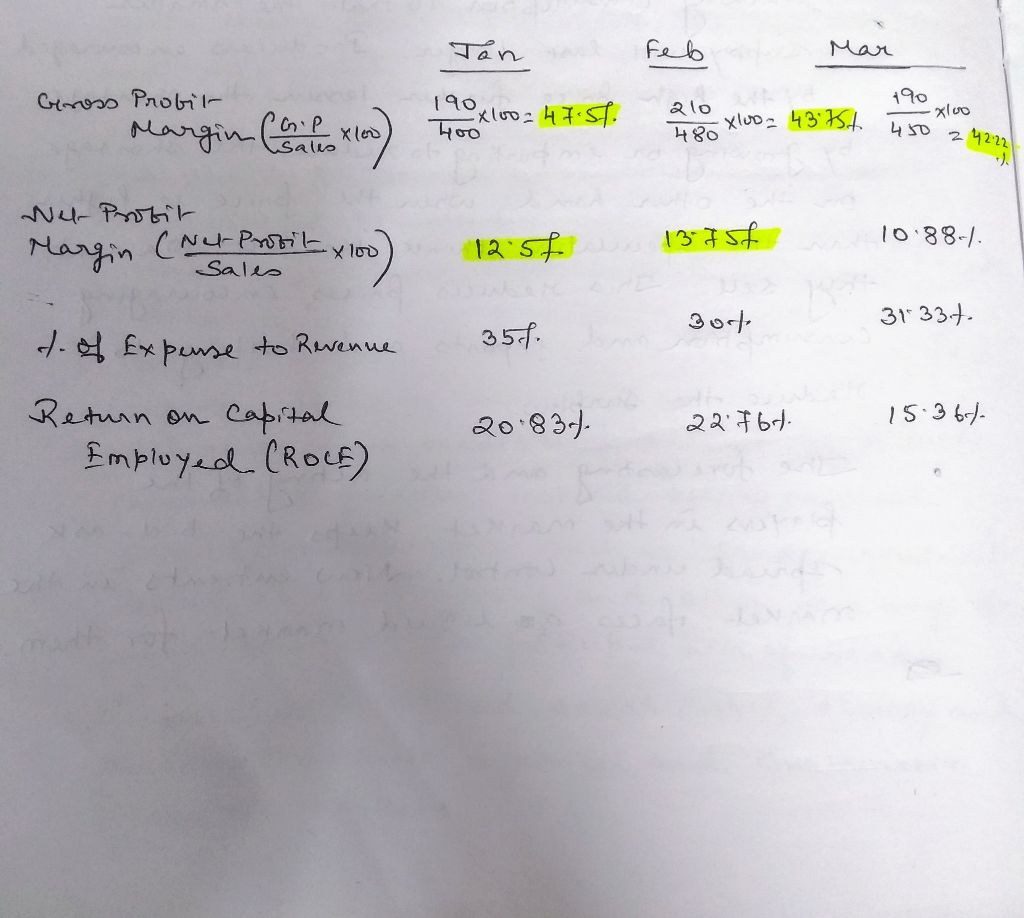 Jan Feb Mar
Gross Profit
Margin (G.P/Sales x100) 190/400 x100 = 47.5% 210/480 x100 = 43.75% 190/450 x100
= 42.22
%
Net Profit
Margin (Net Profit/Sales x100) 12.5% 13.75% 10.88%
% of Expense to Revenue 35% 30% 31.33%
Return on Capital 20.83% 22.76% 15.36%
Employed (ROCE)